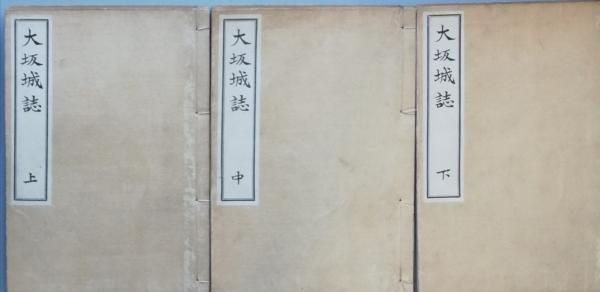 大坂城誌
上
大坂城誌
中
大坂城誌
下